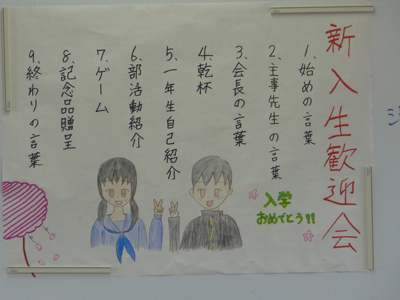 新入生歓迎会
1、始めの言葉
2、主事先生の言葉
3、会長の言葉
4、乾杯
5、一年生自己紹介
6、部活動紹介
7、ゲーム
8、記念品贈呈
9、終わりの言葉
入学
おめでとう!!